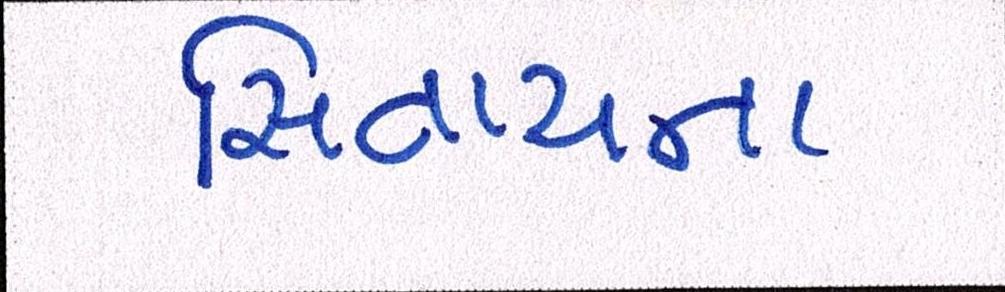 સિવાયના